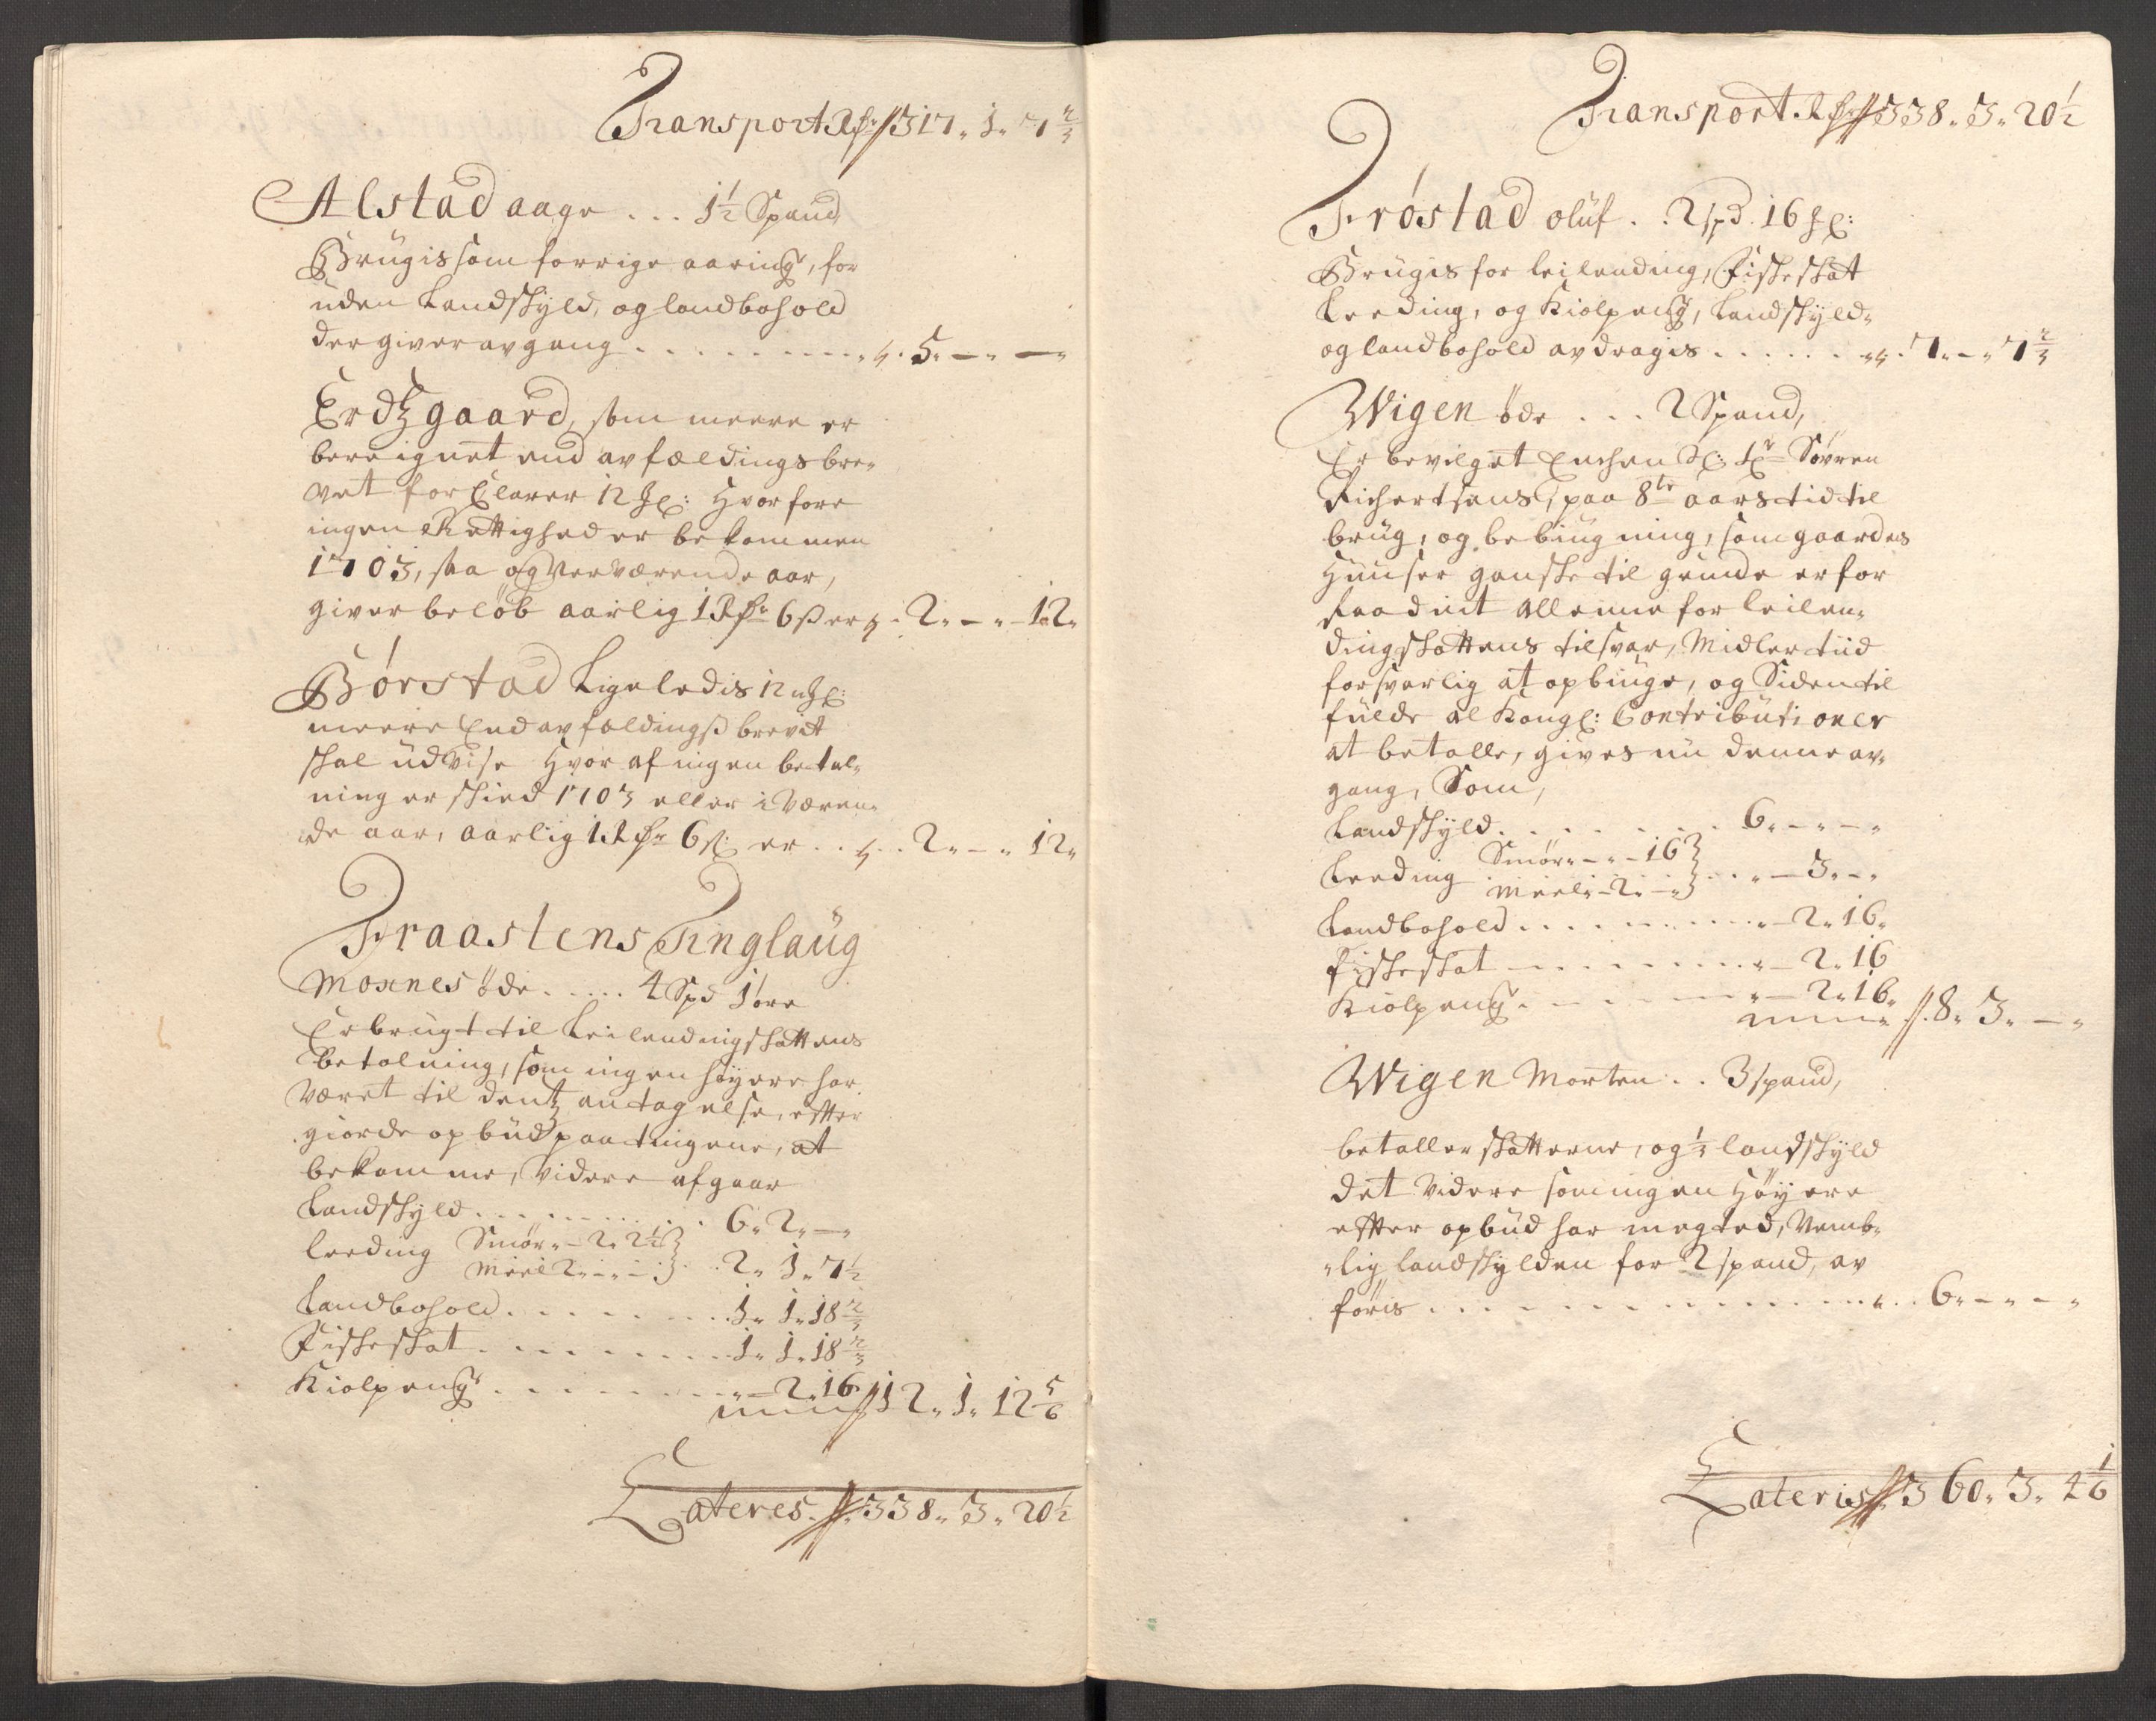 Transport Rdr 317. 1. 7 2/3
Alstad aage ... 1½ Spand
Brugis som forrige aaringr, for
uden Landskyld, og landbohold
der giver avgang . . . . . . . . . 5. — —
Erdtzgaard, som meere er
bereignet end affældings bre-
vet forklarer 12 : Hvor fore
ingen Rettighed er bekommen
1703, saa og nerværende aar,
giver beløb aarlig 1 Rdr 6 s er . 2. — . 12.
Børstad Ligeledis 12 :
meere End affældings brevit
skal udvise Hvor af ingen betal-
ning er skied 1703 eller i væren-
de aar, aarlig 1 Rdr 6 s: er . . . 2. — . 12.
Fraastens Tinglaug
Moxnes øde . . . . . 4 Spd 1 øre
Er brugt til Leilendingskattens
betalning, som ingen høyere har
været til dentz antagelse, effter
giorde opbud paa tingene, at
bekomme, Videre afgaar
Landskyld . . . . . . . . 6. 2. —
Leeding Smør. — 2. 2½
Meel 2. — . — . . 2. 1. 7½
Landbohold . . . . . . . . 1. 1. 18 2/3
Fiskeskat . . . . . . . . 1. 1. 18 2/3
Kiølpengr . . . . . . . . — 2. 16.
12. 1. 12 5/6
Lateres. 338. 3. 20½
Transport Rdr 338. 3. 20½
Frøstad oluf . . 2 spd. 16 :
Brugis for leilending, Fiskeskat
Leeding, og Kiølpengr, Landskyld-
og landbohold avdragis . . . . . . . 7. — . 7 2/3
Wigen øde . . . 2 Spand,
Er bevilget Enchen Sl: Hr Søvren
Richertsens, paa 8te aars tid til
brug, og bebiugning, som gaardes
Huuser ganske til grunde er for
raadnit allenne for leilen-
dingskattens tilsvar, Midlertiid
forsvarlig at opbiuge, og Siden til
fulde al Kongl: Contributioner
at betalle, gives nu denne av-
gang, Som,
Landskyld . . . . . . . 6. — . — .
Leeding Smør. — . — 16
Meel. — 2. — . . . . — 3. — .
Landbohold . . . . . . . . . — 2. 16.
Fiskeskat . . . . . . . . — 2. 16
Kiølpengr . . . . . . . . — 2. 16.
8. 3. —
Wigen Morten . . 3 spand,
betaller skatterne, og 1/3 landskyld
det Videre som ingen Høyere
effter opbud har megted, Nemb-
lig landskylden for 2 spand, av
føris . . . . . . . . . . . . . . . 6. — . — .
Lateris 360. 3. 4 1/6